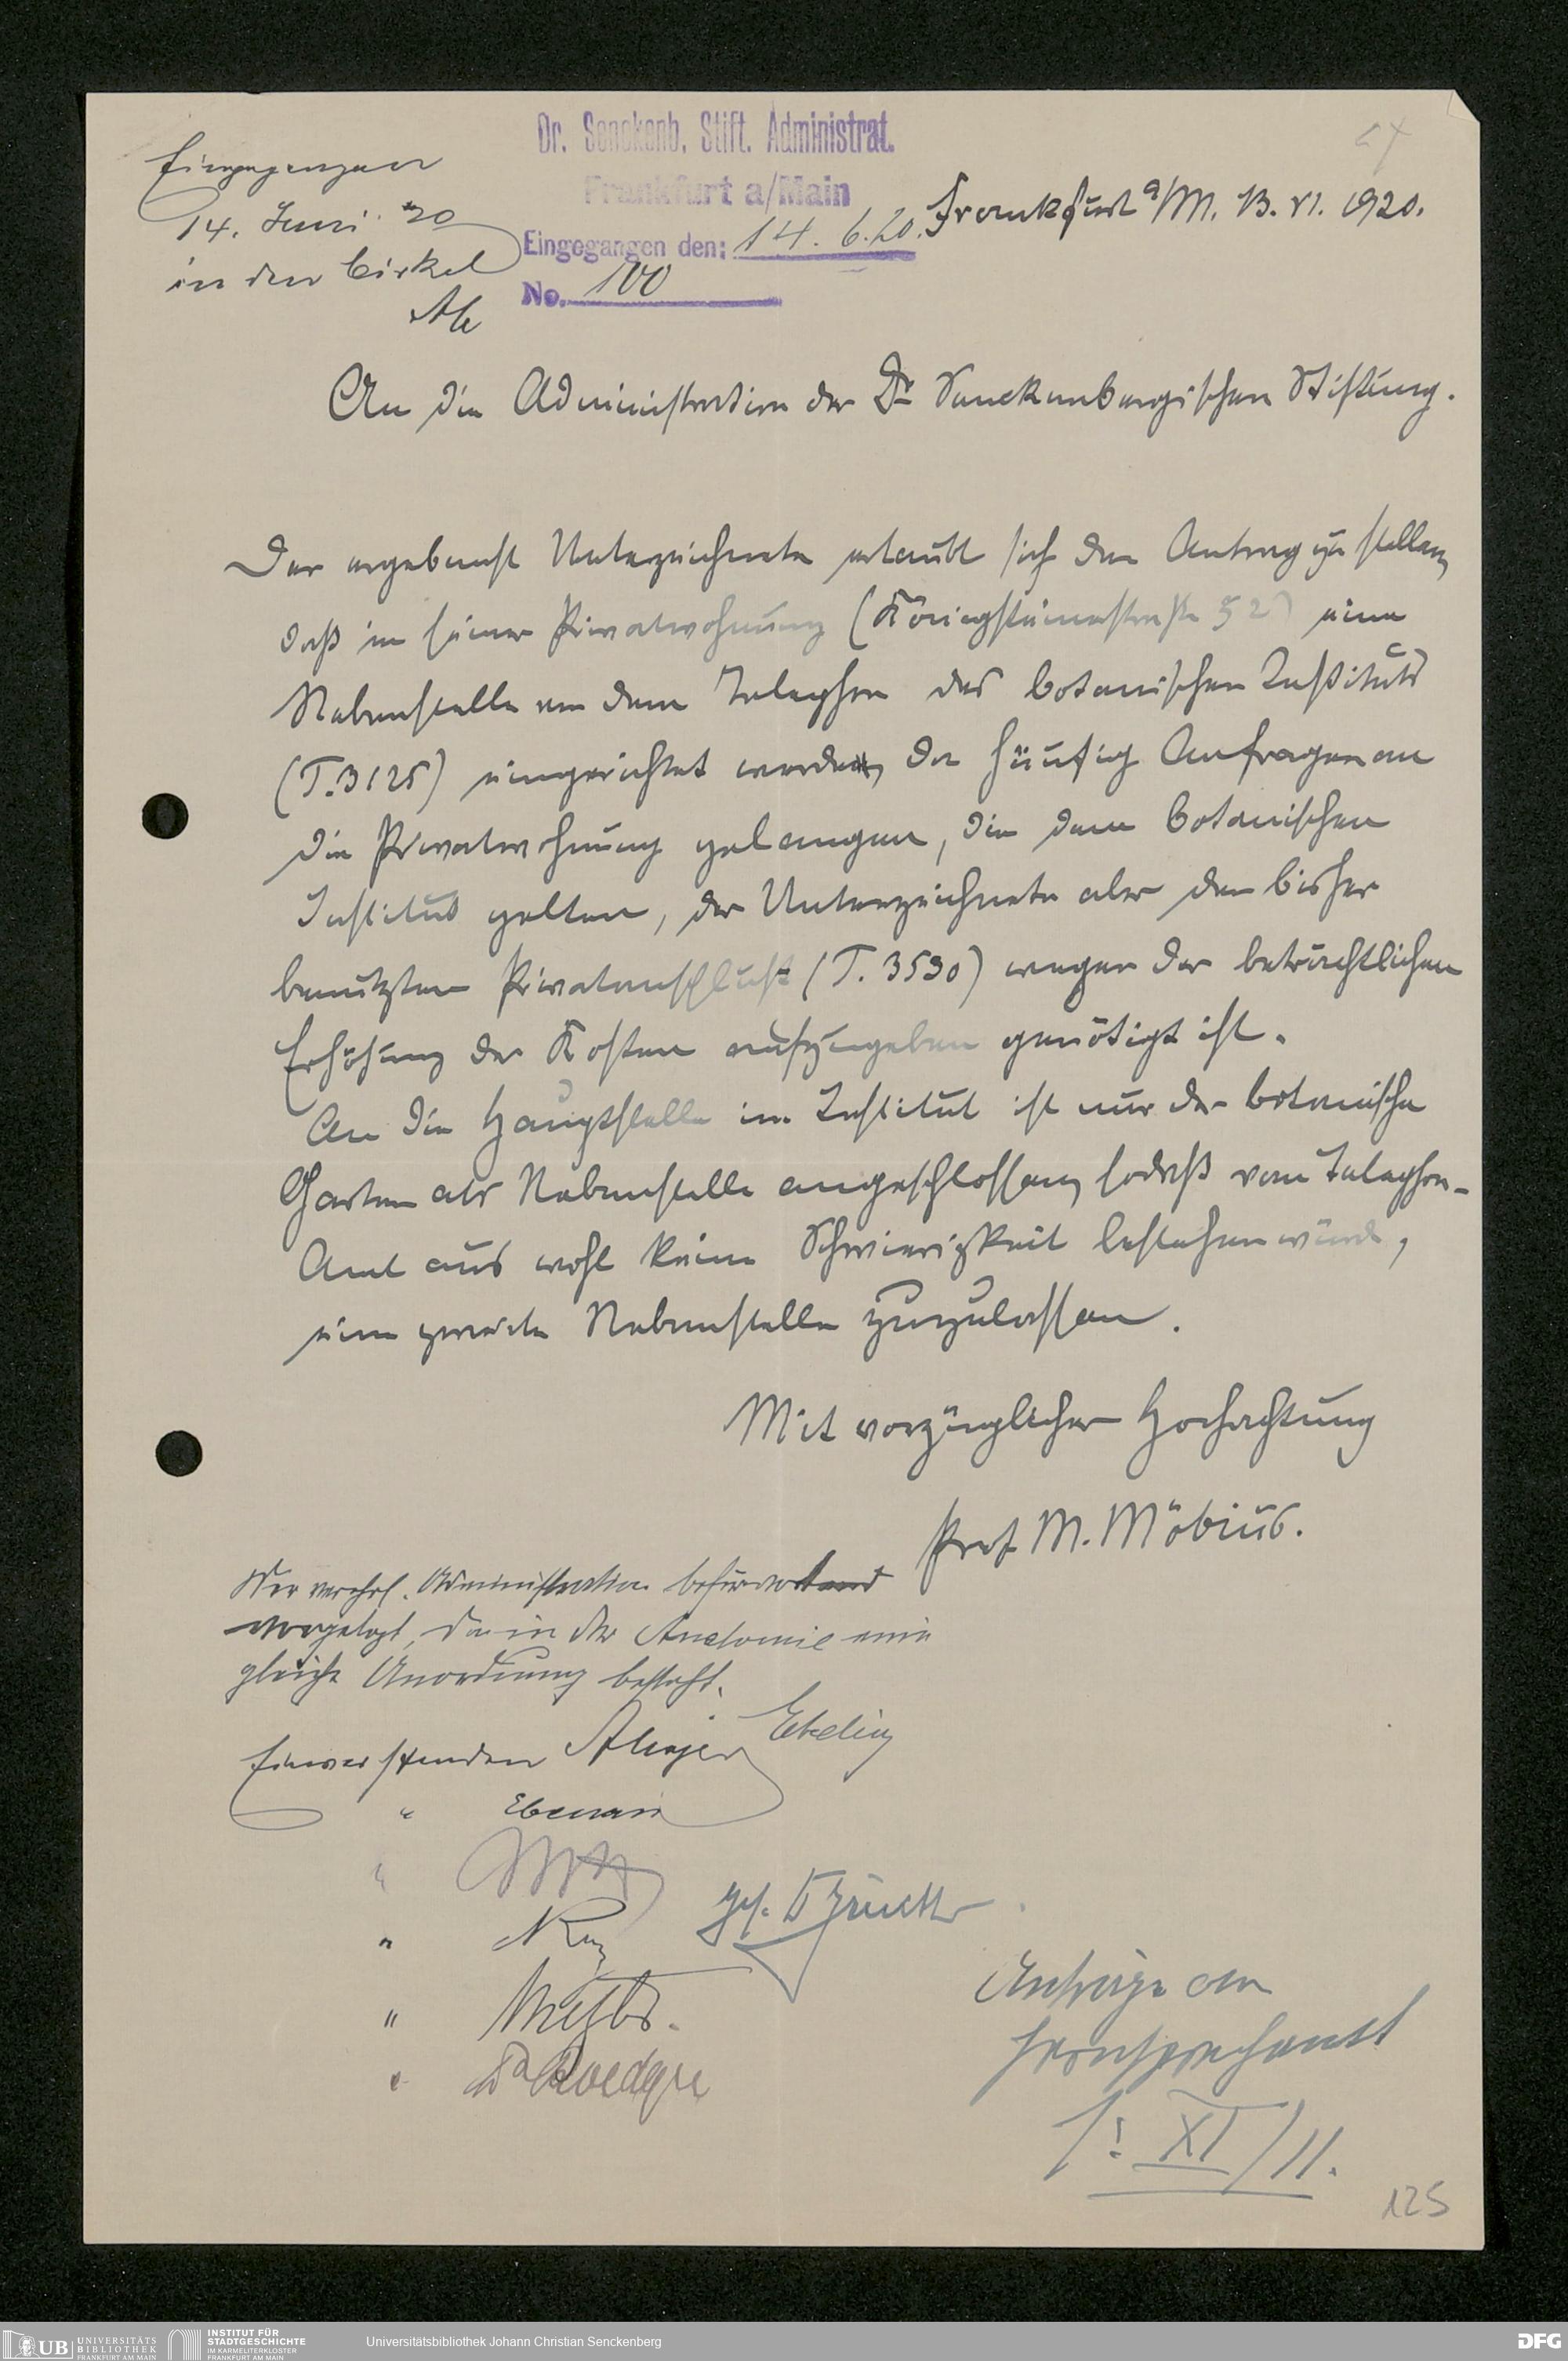 Eingegangen
14. Juni '20
in den Cirkel
Dr. Senckenb. Stift. Administrat.
Frankfurt a/Main
Eingegangen den: 14. 6. 20.
No. 100
Frankfurt a/M. 13. VI. 1920.
An die Administration der Dr. Senckenbergischen Stiftung.
Der ergebenst Unterzeichnete erlaubt sich den Antrag zu stellen,
daß in seiner Privatwohnung (Königsteinerstraße 52) eine
Nebenstelle von dem Telephon des botanischen Instituts
(T. 3125) eingerichtet werde, da häufig Anfragen an
die Privatwohnung gelangen, die dem botanischen
Institut gelten, der Unterzeichnete aber den bisher
benutzten Privatanschluß (T. 3530) wegen der beträchtlichen
Erhöhung der Kosten aufzugeben genötigt ist.
An die Hauptstelle im Institut ist nur der botanische
Garten als Nebenstelle angeschlossen, sodaß vom Telephon-
Amt aus wohl keine Schwierigkeit bestehen würde,
eine zweite Nebenstelle zuzulassen.
Mit vorzüglicher Hochachtung
Prof. M. Möbius.
Der verehrl. Administration befürwortend
vorgelegt, da in der Anatomie eine
gleiche Anordnung besteht.
Ebeling
Einverstanden
" 
"
"
"
" Dr Roediger
Anträge an
Fernsprechamt
s! XI/11.
125
UB UNIVERSITÄTS
BIBLIOTHEK
FRANKFURT AM MAIN
INSTITUT FÜR
STADTGESCHICHTE
IM KARMELITERKLOSTER
FRANKFURT AM MAIN
Universitätsbibliothek Johann Christian Senckenberg
DFG